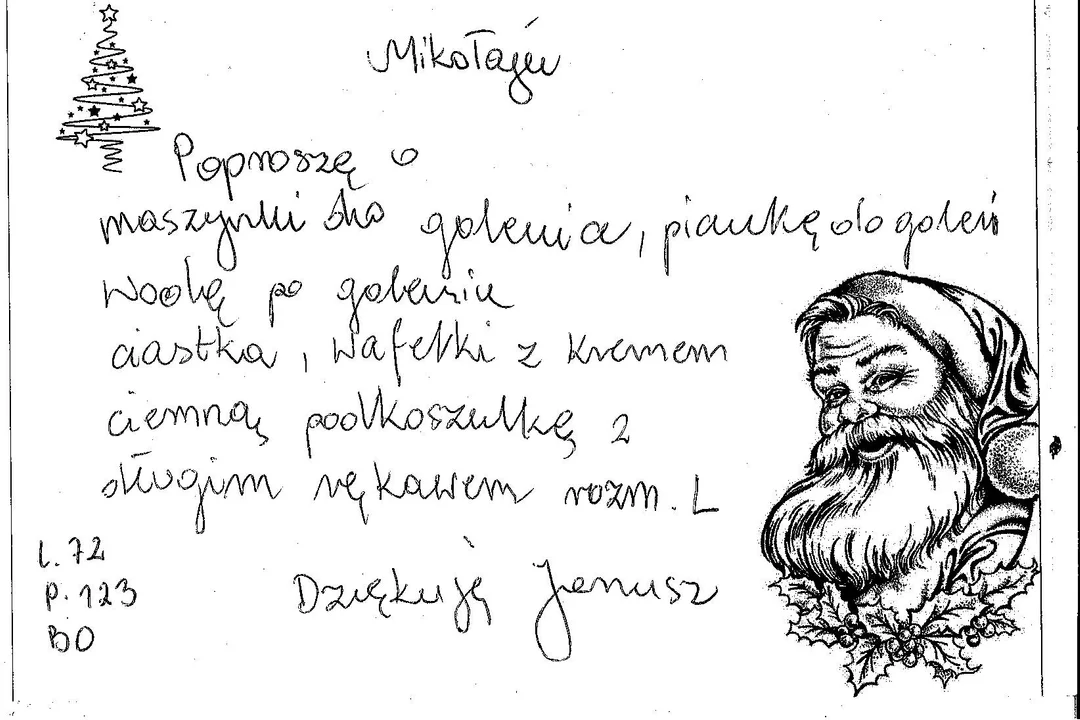 Mikołaju
Poproszę o
maszynki do golenia, piankę do goleń
wodę po goleniu
ciastka, wafelki z kremem
ciemną podkoszulkę z
długim rękawem rozm. L
l. 72
p. 123
BO
Dziękuję Janusz